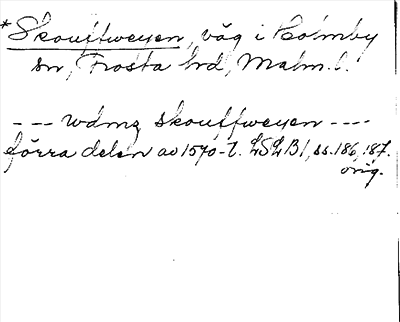 *Skouffweyen, väg i Holmby
sn, Frosta hrd, Malm. l.
--- wdmz skouffweyen ----
förra delen av 1570-t. LSLB 1, ss. 186, 187.
orig.